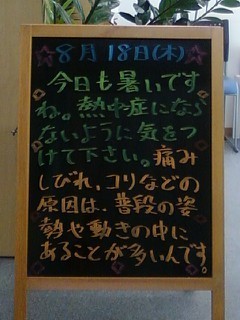 8月18日(木)
今日も暑いです
ね。熱中症になら
ないように気をつ
けて下さい。痛み
しびれ、コリなどの
原因は、普段の姿
勢や動きの中に
あることが多いんです。